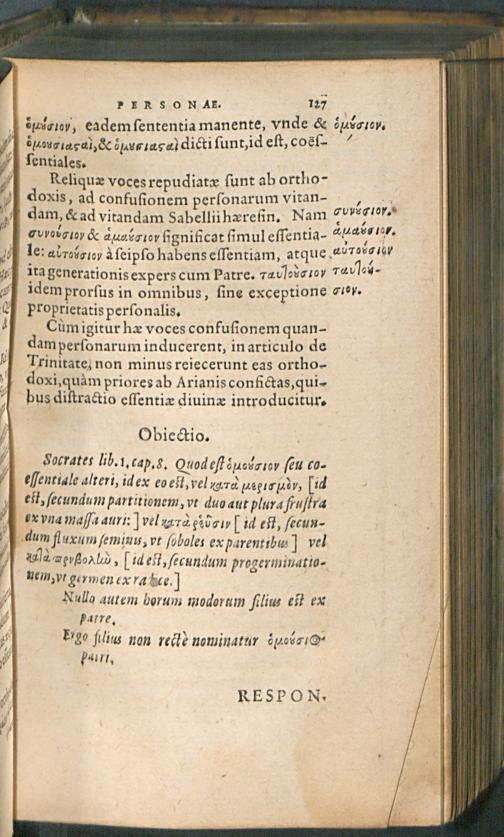 PERSONAE. 127
ὁμούσιον, eadem sententia manente, vnde & ὁμούσιον.
ὁμουσιαςαὶ, & ὁμουσιαςαὶ dicti sunt, id est, coës-
sentiales.
Reliquæ voces repudiatæ sunt ab ortho-
doxis, ad confusionem personarum vitan-
dam, & ad vitandam Sabellii hæresin. Nam συνούσιον.
συνούσιον & ἁμαούσιον significat simul essentia- ἁμαούσιον.
le: αὐτούσιον à seipso habens essentiam, atque αὐτούσιον
ita generationis expers cum Patre. ταυτούσιον ταυτού-
idem prorsus in omnibus, sine exceptione σιον.
proprietatis personalis.
Cùm igitur hæ voces confusionem quan-
dam personarum inducerent, in articulo de
Trinitate, non minus reiecerunt eas ortho-
doxi, quàm priores ab Arianis confictas, qui-
bus distractio essentiæ diuinæ introducitur.
Obiectio.
Socrates lib. 1. cap. 8. Quod est ὁμούσιον seu co-
essentiale alteri, id ex eo est, vel κατὰ μερισμὸν, [id
est, secundum partitionem, vt duo aut plura frustra
ex vna massa auri:] vel κατὰ ῥεῦσιν [id est, secun-
dum fluxum seminis, vt soboles ex parentibus] vel
κατὰ προβολὼ, [id est, secundum progerminatio-
nem, vt germen ex radice.]
Nullo autem horum modorum filius est ex
patre.
Ergo filius non rectè nominatur ὁμούσιος
patri.
RESPON.